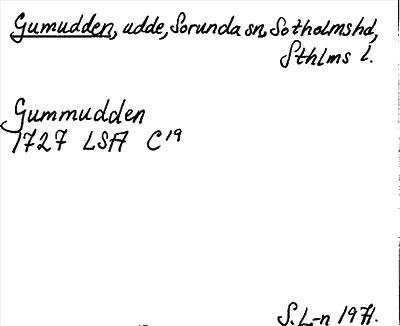 Gumudden, udde, Sorunda sn, Sotholmshd,
Sthlms l.
Gummudden
1727 LSA C19
S. L-n 1971.